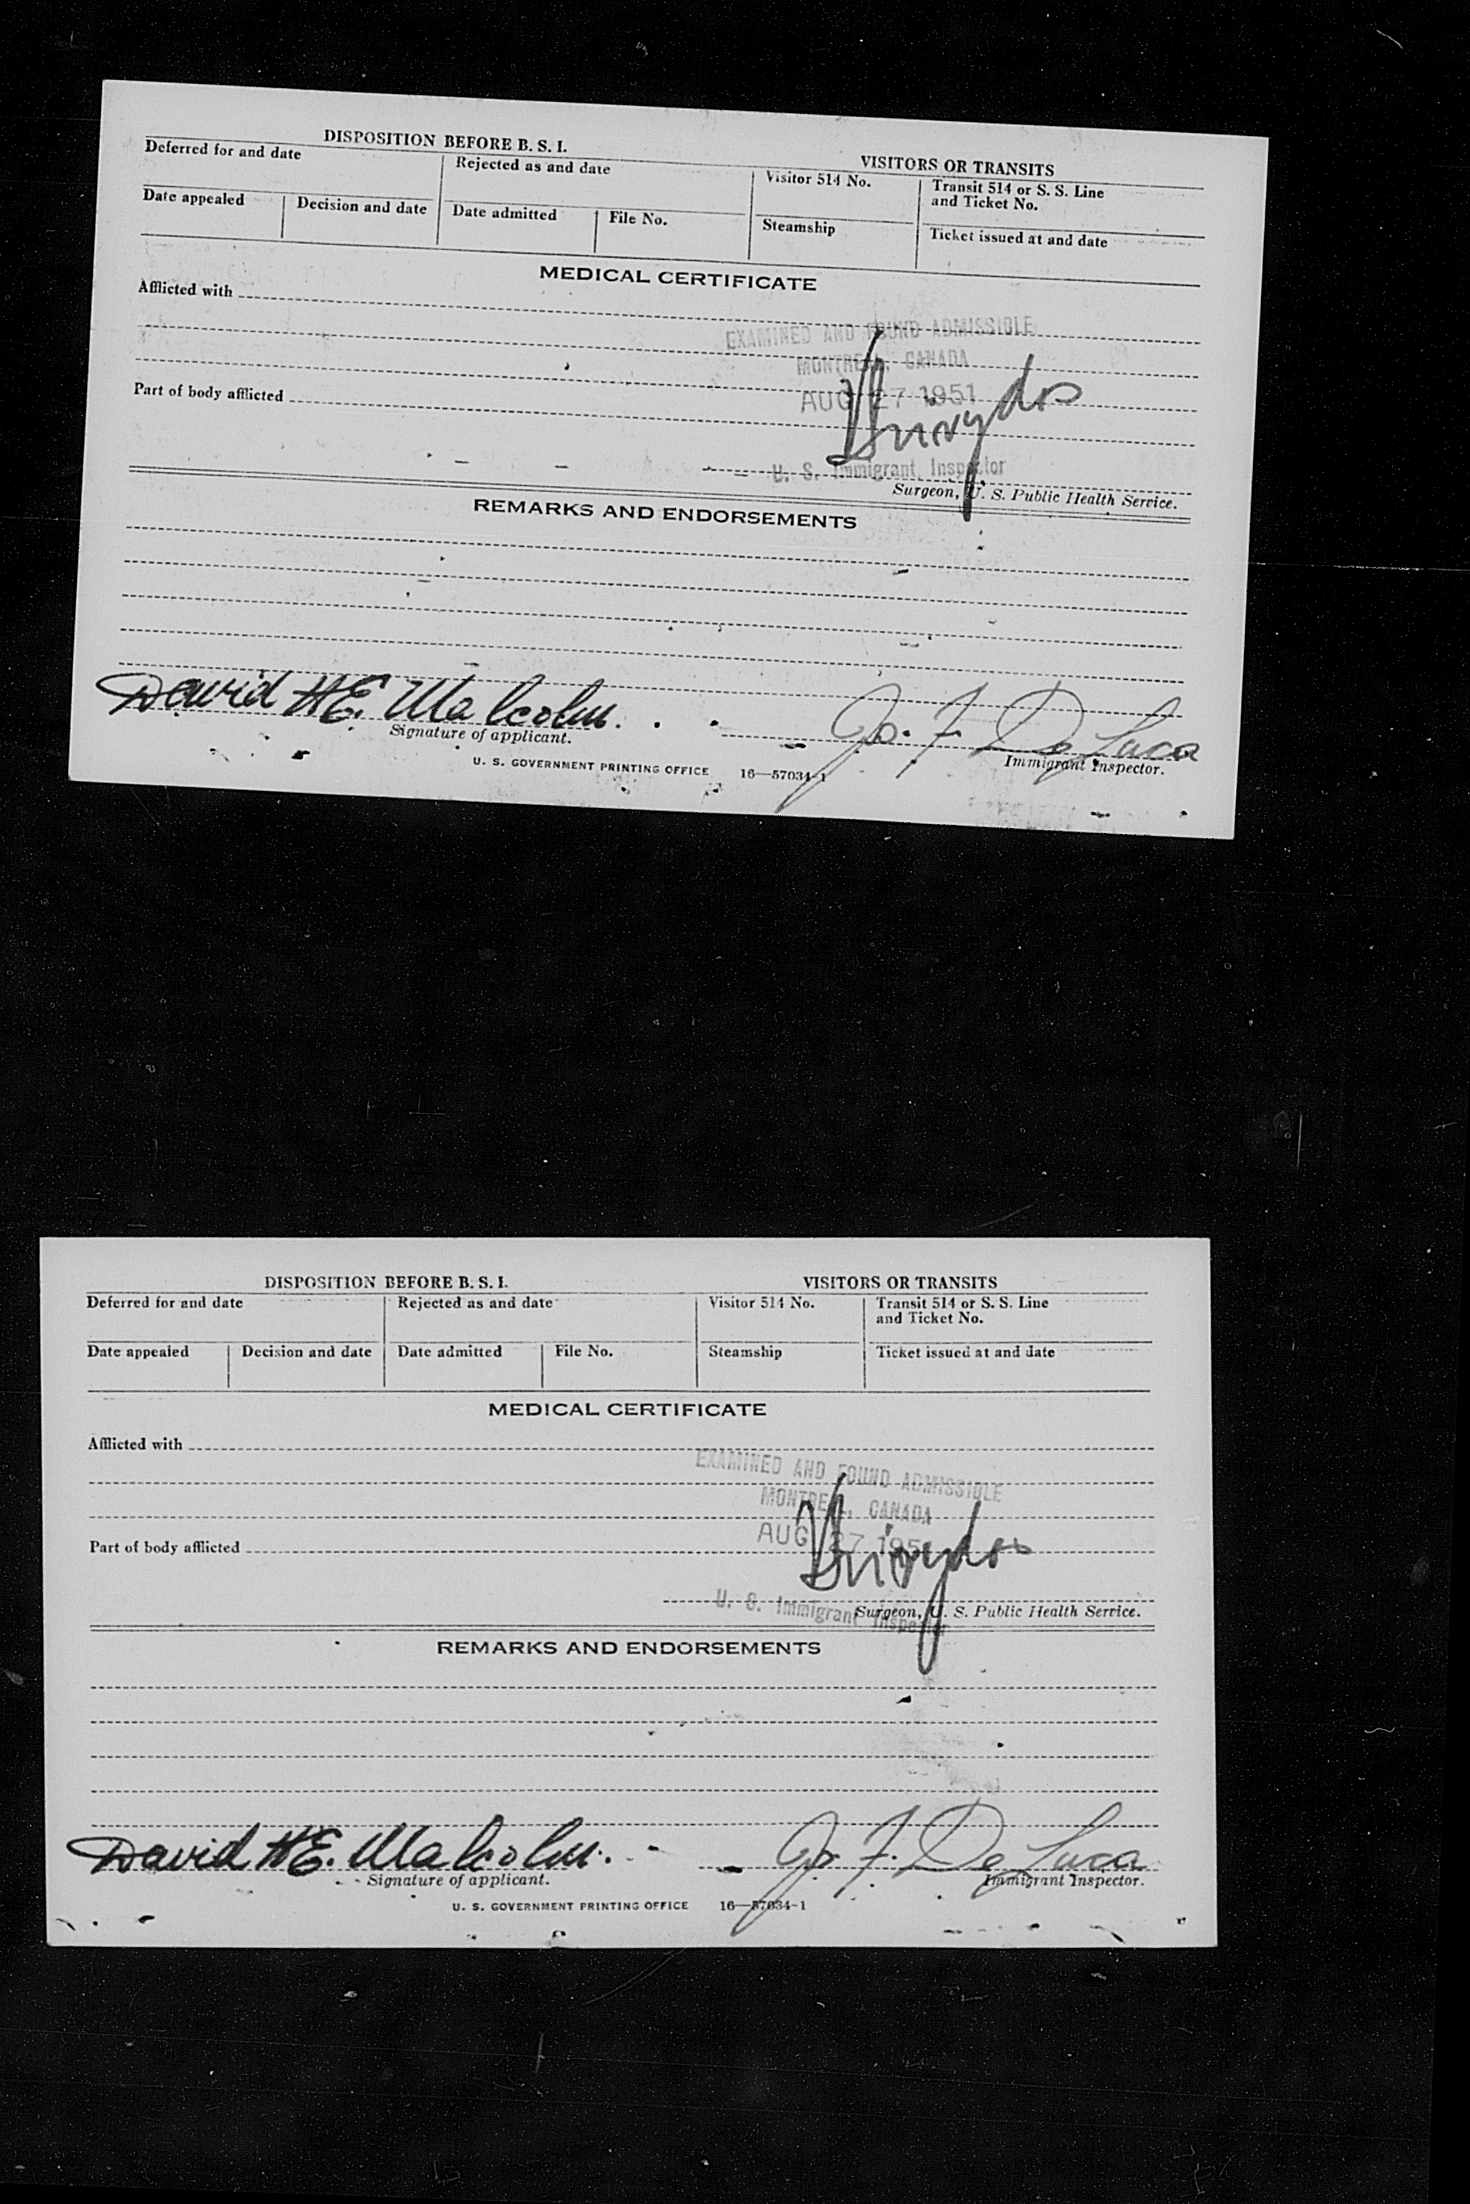 DISPOSITION BEFORE B. S. I. VISITORS OR TRANSITS
Deferred for and date Rejected as and date Visitor 514 No. Transit 514 or S. S. Line
and Ticket No.
Date appealed Decision and date Date admitted File No. Steamship Ticket issued at and date
MEDICAL CERTIFICATE
Afflicted with
EXAMINED AND FOUND ADMISSIBLE
MONTREAL, CANADA
Part of body afflicted AUG 27 1951
U. S. Immigrant Inspector
Surgeon, U. S. Public Health Service.
REMARKS AND ENDORSEMENTS
David H E. Malcolm. Jo. F. De Luca
Signature of applicant. Immigrant Inspector.
U. S. GOVERNMENT PRINTING OFFICE 16—57034-1
DISPOSITION BEFORE B. S. I. VISITORS OR TRANSITS
Deferred for and date Rejected as and date Visitor 514 No. Transit 514 or S. S. Line
and Ticket No.
Date appealed Decision and date Date admitted File No. Steamship Ticket issued at and date
MEDICAL CERTIFICATE
Afflicted with
EXAMINED AND FOUND ADMISSIBLE
MONTREAL, CANADA
AUG 27 1951
Part of body afflicted
U. S. Immigrant Inspector
Surgeon, U. S. Public Health Service.
REMARKS AND ENDORSEMENTS
David H E. Malcolm. Jo. F. De Luca
Signature of applicant. Immigrant Inspector.
U. S. GOVERNMENT PRINTING OFFICE 16—57034-1